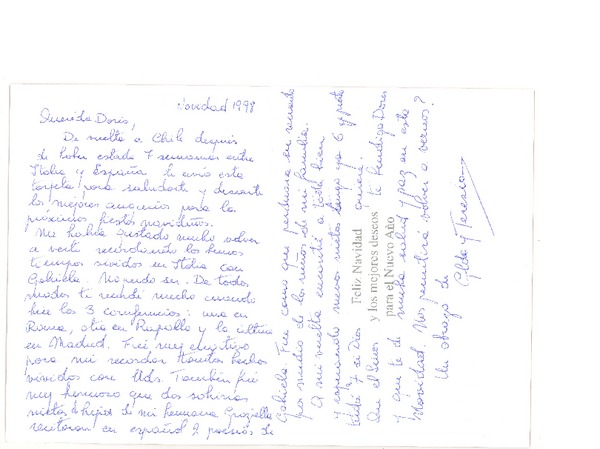 Navidad 1998
Querida Doris,
De vuelta a Chile después
de haber estado 7 semanas entre
Italia y España te envío esta
tarjeta para saludarte y desearte
los mejores augurios para la
próximas fiestas navideñas.
Me había gustado mucho volver
a verte recordando los buenos
tiempos vividos en Italia con
Gabriela. No pudo ser. De todos
modos te recordé mucho cuando
hice las 3 conferencias: una en
Roma, otra en Rapallo y la última
en Madrid. Fué muy emotivo
para mi recordar tantos hechos
vividos con Uds. También fué
muy hermoso que dos sobrinos
nietos e hijos de mi hermana Graziella
recitaran en español 2 poesías de
Gabriela. Fue como que perdurara su recuerdo
por medio de los niños de mi familia.
A mi vuelta encontré a todos bien
y conociendo nuevos nietos tengo ya 6 y pronto
tendré 7 si Dios quiere.
Feliz Navidad
y los mejores deseos
para el Nuevo Año
Que el Señor te bendiga Doris
y que te dé mucha salud y paz en esta
Navidad. Nos permitirá volver a vernos?
Un abrazo de
Gilda y Teresio